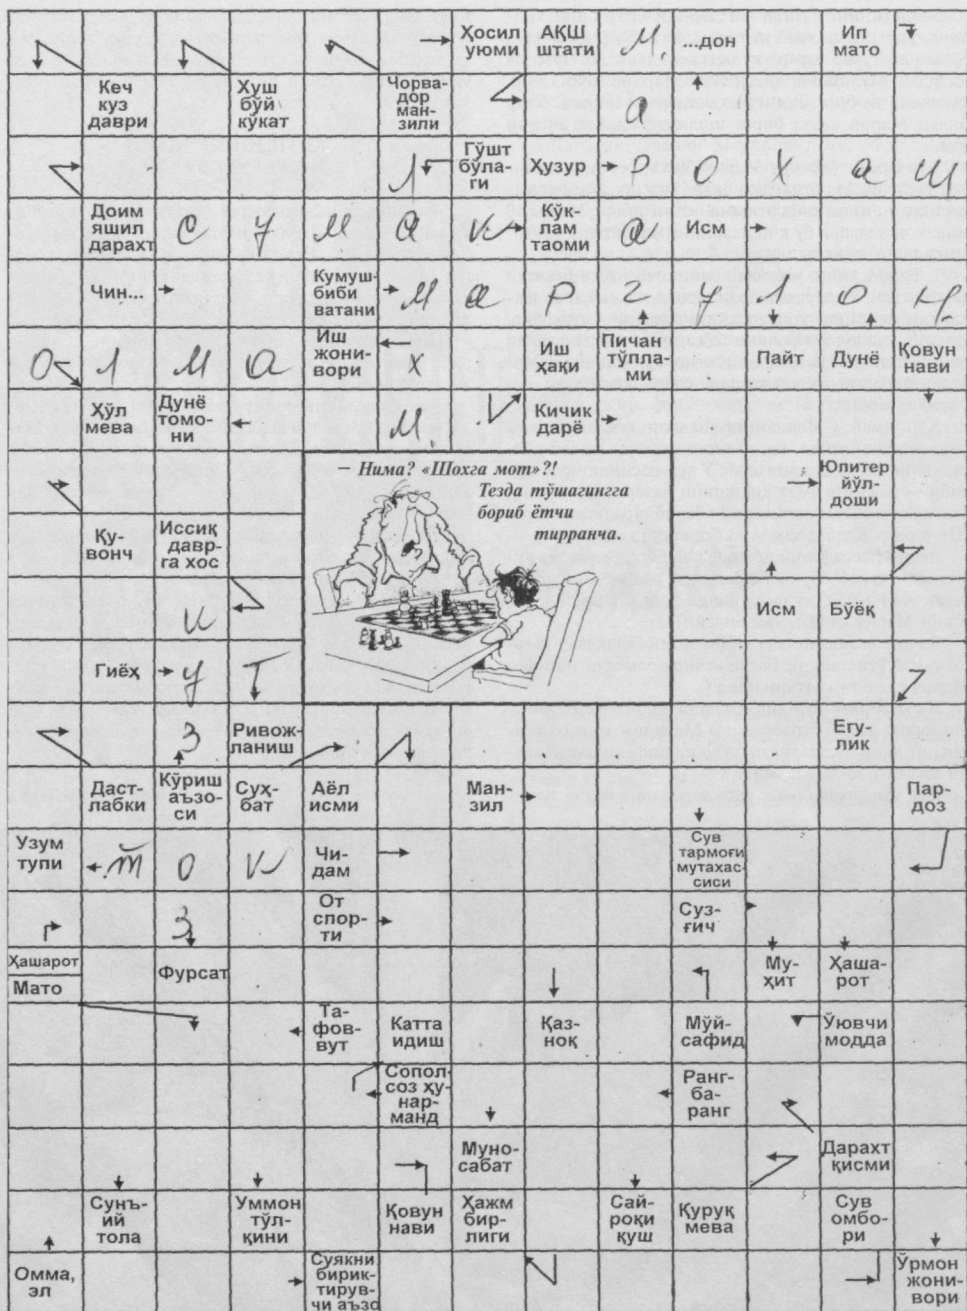 Ҳосил уюми АҚШ штати м ...дон Ип мато
Кеч куз даври Хуш бўй кўкат Чорва- дор ман- зили а
л Гўшт бўла- ги Ҳузур р о х а т
Доим яшил дарахт с у м а к Кўк- лам таоми а Исм
Чин... Кумуш- биби ватани м а р г у л о н
О л м а Иш жони- вори х Иш ҳақи Пичан тўпла- ми Пайт Дунё Қовун нави
Ҳўл мева Дунё томо- ни м Кичик дарё
– Нима? «Шохга мот»?!
Тезда тўшагингга
бориб ётчи
тирранча.
Юпитер йўл- доши
Қу- вонч Иссиқ давр- га хос
и Исм Бўёқ
Гиёҳ у т
з Ривож- ланиш Егу- лик
Даст- лабки Кўриш аъзо- си Суҳ- бат Аёл исми Ман- зил Пар- доз
Узум тупи т о к Чи- дам Сув тармоғи мутахас- сиси
з От спор- ти Суз- ғич
Ҳашарот Мато Фурсат Му- ҳит Ҳаша- рот
Та- фов- вут Катта идиш Қаз- ноқ Мўй- сафид Ўювчи модда
Сопол- соз ҳу- нар- манд Ранг- ба- ранг
Муно- сабат Дарахт қисми
Сунъ- ий тола Уммон тўл- қини Қовун нави Ҳажм бир- лиги Сай- роқи қуш Қуруқ мева Сув омбо- ри
Омма, эл Суякни бирик- тирув- чи аъзо Ўрмон жони- вори